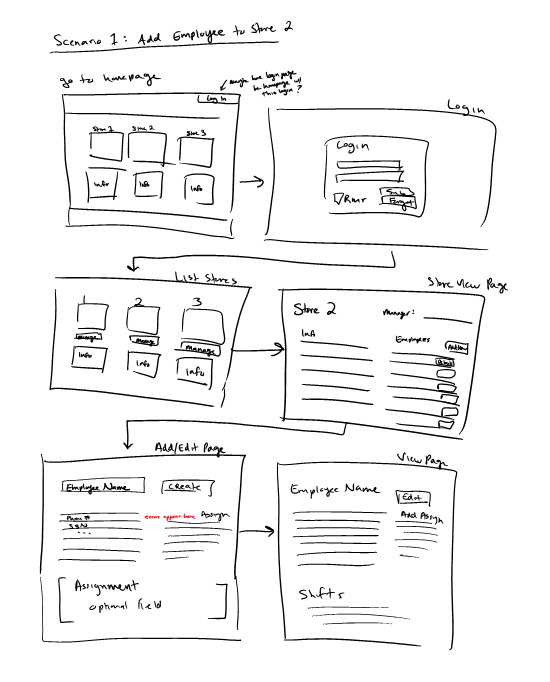 Scenario 1: Add Employee to Store 2
go to homepage
maybe have login page
be homepage w/
this login?
Log In
Store 1 Store 2 Store 3
Info Info Info
Login
Login
Sub
Rmr
Forgot
List Stores
1 2 3
Manage Manage Manage
Info Info Info
Store View Page
Store 2 Manager:
Info Employees
Add/Edit Page
Employee Name Create
Phone #
errors appear here Assign
SSN
...
Assignment
optional field
View Page
Employee Name Edit
Add Assign
Shifts